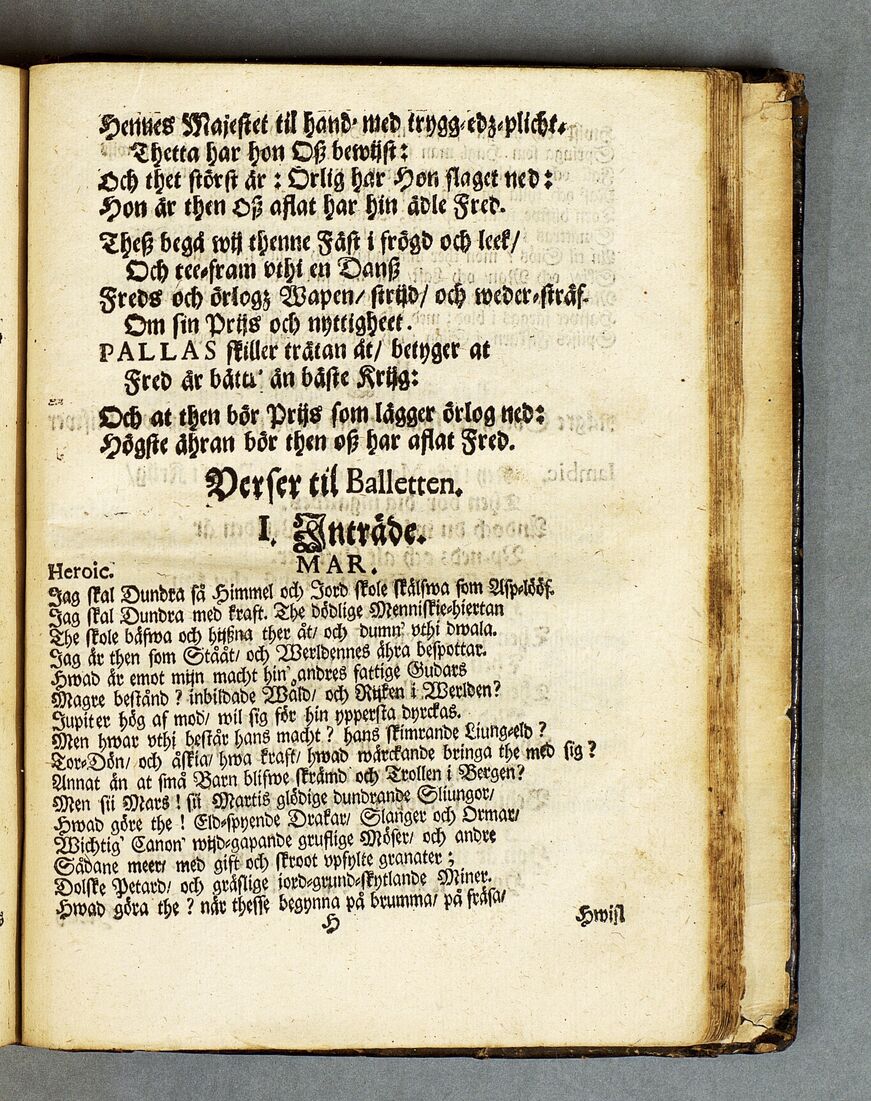 Hennes Majestet til hand' med trygg-edz-plicht.
Thetta har hon Oß bewijst:
Och thet störst är: Örlig har Hon slaget ned:
Hon är then Oß aflat har hin ädle Fred.
Theß begå wij thenne Fäst i frögd och leek/
Och tee-fram vthi en Danß
Freds och örlogz Wapen/ strijd/ och weder-sträf.
Om sin Prijs och nyttigheet.
PALLAS skiller trätan åt/ betyger at
Fred är bättr' än bäste Krijg:
Och at then bör Prijs som lägger örlog ned:
Högste ähran bör then oß har aflat Fred.
Verser til Balletten.
I. Inträde.
MAR.
Heroic.
Jag skal Dundra så Himmel och Jord skole skälfwa som Asp-lööf.
Jag skal Dundra med kraft. The dödlige Menniskie-hiertan
The skole bäfwa och hijßna ther åt/ och dumn' vthi dwala.
Jag är then som Stååt/ och Werldennes ähra bespottar.
Hwad är emot mijn macht hin' andres fattige Gudars
Magre bestånd? inbildade Wåld/ och Rijken i Werlden?
Jupiter hög af mod/ wil sig för hin yppersta dyrckas.
Men hwar vthi består hans macht? hans skimrande Liung-eld?
Tor-Dön/ och åskia/ hwa kraft/ hwad wärckande bringa the med sig?
Annat än at små Barn blifwe skrämd' och Trollen i Bergen?
Men sii Mars! sii Martis glödige dundrande Sliungor/
Hwad göre the! Eld-spyende Drakar/ Slanger och Ormar/
Wichtig' Canon' wijd-gapande gruflige Möser/ och andre
Sådane meer/ med gift och skroot vpfylte granater;
Dolske Petard/ och gräslige jord-grund-skytlande Miner.
Hwad göra the? när thesse begynna på brumma/ på fräsa/
H
Hwisl